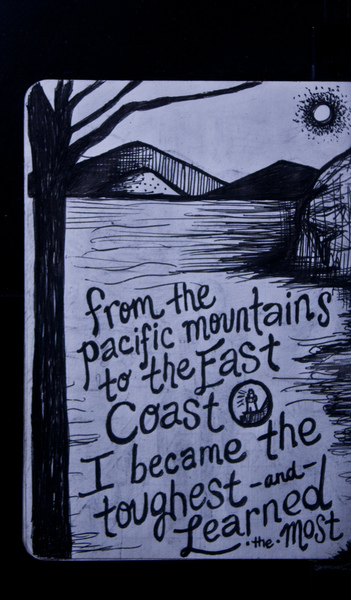 from the
pacific mountains
to the East
Coast
I became the
toughest -and-
Learned
.the. Most